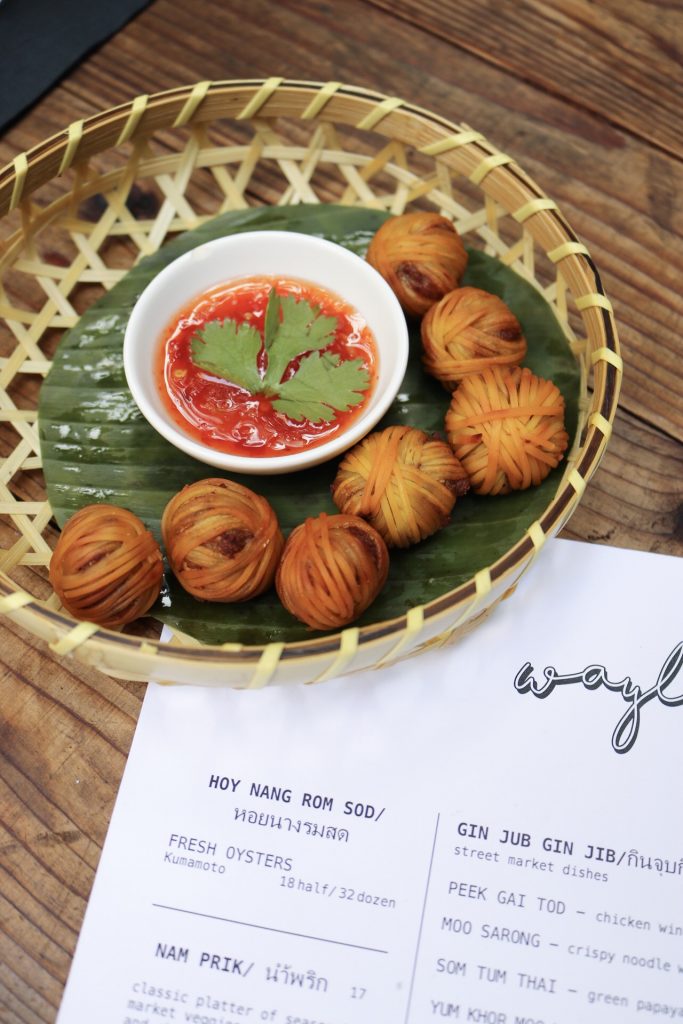 wayl
HOY NANG ROM SOD/
หอยนางรมสด
FRESH OYSTERS
Kumamoto
18 half/32 dozen
NAM PRIK/ น้ำพริก 17
classic platter of
market
GIN JUB GIN JIB/กินจุบกิ
street market dishes
PEEK GAI TOD – chicken win
MOO SARONG – crispy noodle w
SOM TUM THAI – green papaya
YUM KHOR MOO